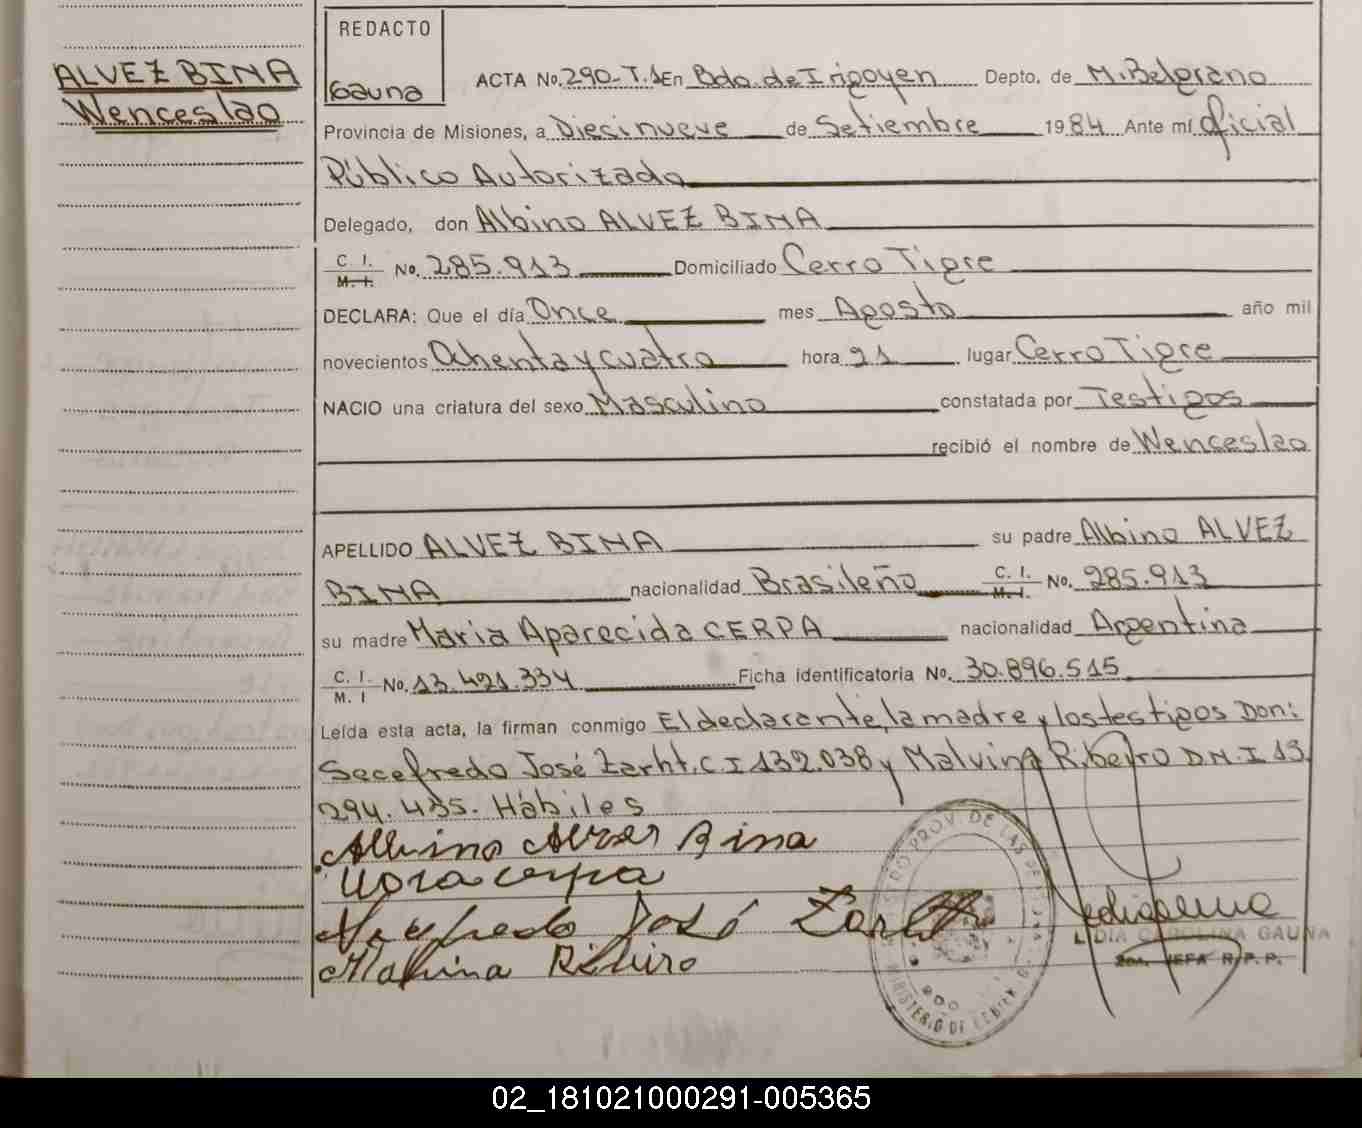 REDACTO
Gauna
ALVEZ BINA
Wenceslao
ACTA No. 290-T.1 En Bdo. de Irigoyen Depto. de M. Belgrano
Provincia de Misiones, a Diecinueve de Setiembre 1984 Ante mí Oficial
Público Autorizado
Delegado, don Albino ALVEZ BINA
C. I. M. I. No. 285.913 Domiciliado Cerro Tigre
DECLARA: Que el día Once mes Agosto año mil
novecientos Ochenta y cuatro hora 21 lugar Cerro Tigre
NACIO una criatura del sexo Masculino constatada por Testigos
recibió el nombre de Wenceslao
APELLIDO ALVEZ BINA su padre Albino ALVEZ
BINA nacionalidad Brasileño C. I. M. I. No. 285.913
su madre Maria Aparecida CERPA nacionalidad Argentina
C. I. M. I No. 13.421.334 Ficha identificatoria No. 30.896.515
Leída esta acta, la firman conmigo El declarante, la madre y los testigos Don:
José Zarht. C.I 132.038 y Malvina Ribeiro D.N.I 13.
294.435. Hábiles
Albino Alvez Bina
cerpa
José
Malvina Ribeiro
PROV. DE LAS
MINISTERIO DE
BDO
LIDIA CAROLINA GAUNA
JEFA R.P.P.
02_181021000291-005365